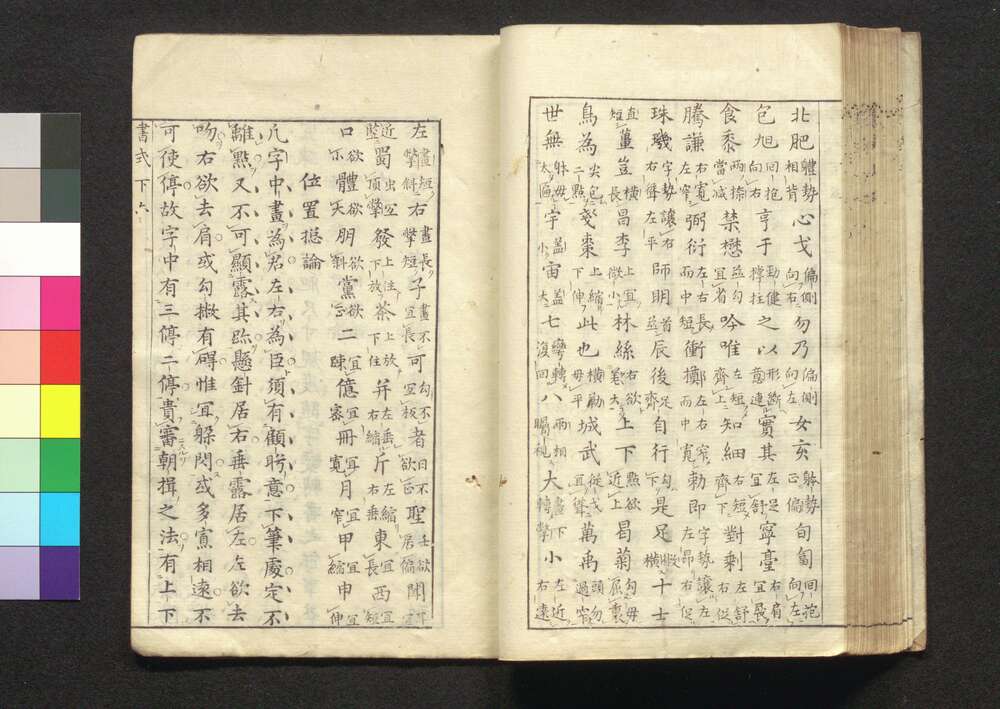 北肥體勢相背心戈偏側向右勿乃偏側向左女亥體勢正偏旬匐回抱向左
包旭回抱向右亨于勁健撐拄之以形斷意連實其左足宜舒寧臺右肩宜長
食黍兩捺當減禁懋並勾宜省吟唯左短齊上知細右短齊下對剩左舒右促
騰謙右寬左窄弼衍左右長而中短衝擲左右窄而中寬勅即字勢讓左左昂右促
珠璣字勢讓右右聳左平師明首並辰後足齊自行勾是足橫十士
直短薑豈橫長昌李上宜微小林絲右欲大上下點欲近上曷菊勾毋
鳥為二點變棗上縮下伸此也橫城武宜聳萬禹頭勿過窄
世無宇蓋小宙蓋大七彎轉八兩相大畫下小左近右遠
左畫短右畫長撇短子畫不宜長可勾不宜者日不欲正聖壬欲居偏開
近蜀虫宜頂發上住下放茶上放下住弁左垂右縮斤左縮右垂東宜長西宜短
口欲體欲朋欲黨欲二疎億密冊宜寬月宜窄甲宜縮申宜伸
位置摠論
凡字中畫為君左右為臣須有顧盻意下筆處定不
離點又不可顯露其跡懸針居右垂露居左左欲去
吻右欲去肩或勾撇有碍惟宜躲閃或多寡相遠不
可使停故字中有三停二停貴審朝揖之法有上下
書式下六